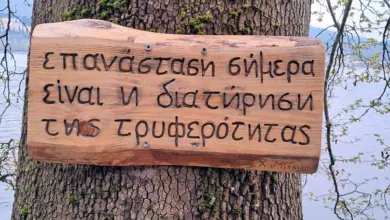 επανάσταση σήμερα
είναι η διατήρηση
της τρυφερότητας